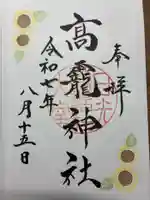 奉拝
高龗神社
令和七年
八月十五日